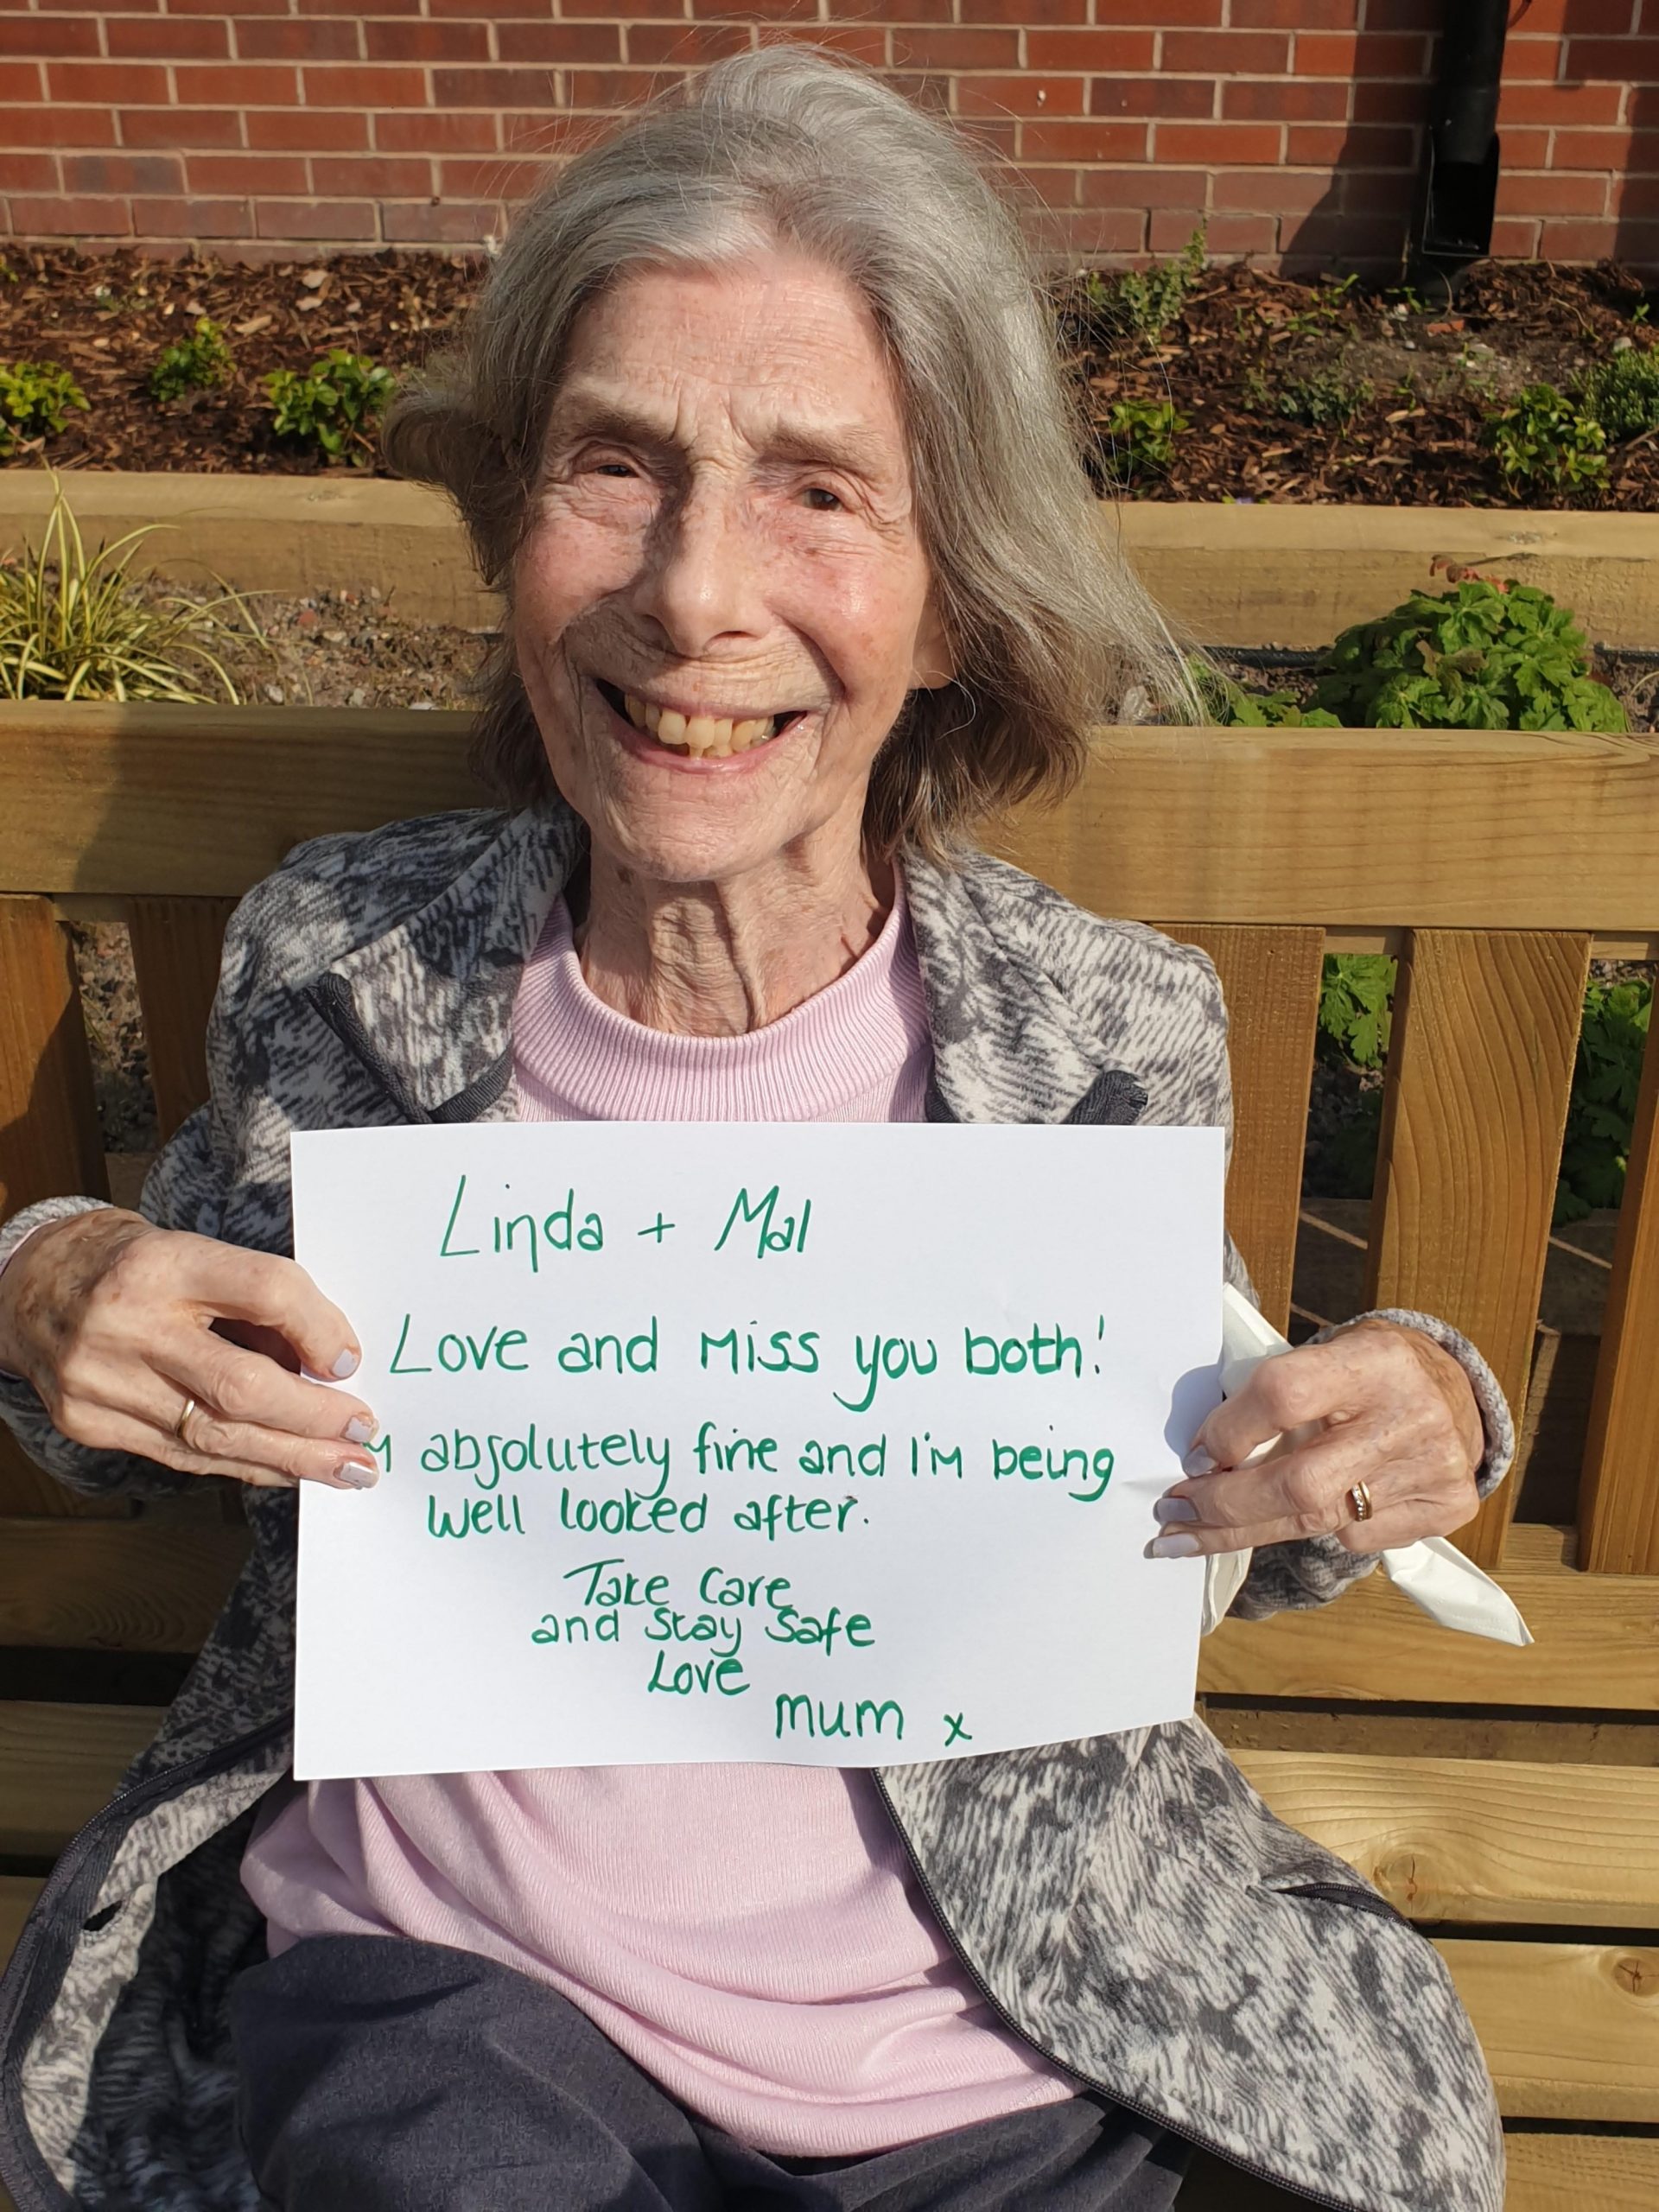 Linda + Mal
Love and Miss you both!
M absolutely fine and I'm being
Well looked after.
Take Care
and Stay Safe
Love
Mum x